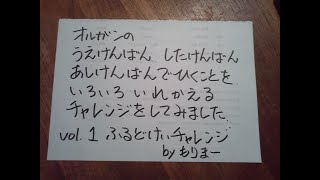 オルガンの
うえけんばん したけんばん
あしけんばんでひくことを
いろいろ いれかえる
チャレンジをしてみました
vol.1 ふるどけいチャレンジ
by もりまー